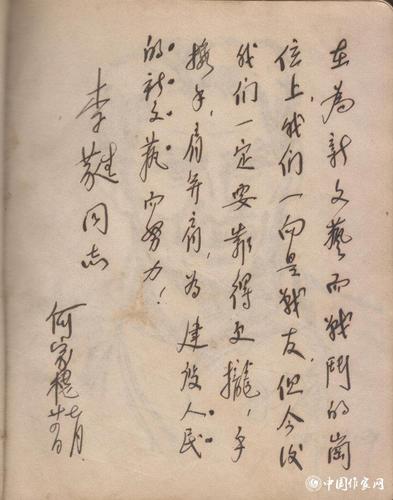 在為新文藝而战鬥的崗
位上,我们一向是战友,但今後
我们一定要靠得更攏,手
携手,肩并肩,为建设人民
的新文藝而努力!
李蕤同志
何家槐
七月
中国作家网